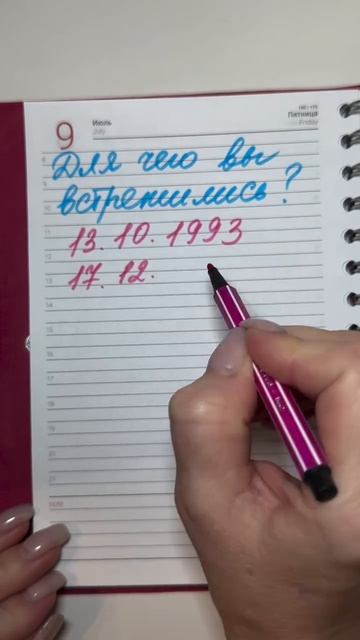 9
Июль
July
Пятница
Friday
Для чего вы
встретились?
13. 10. 1993
17. 12.
8
9
10
11
12
13
14
15
16
17
18
19
20
21